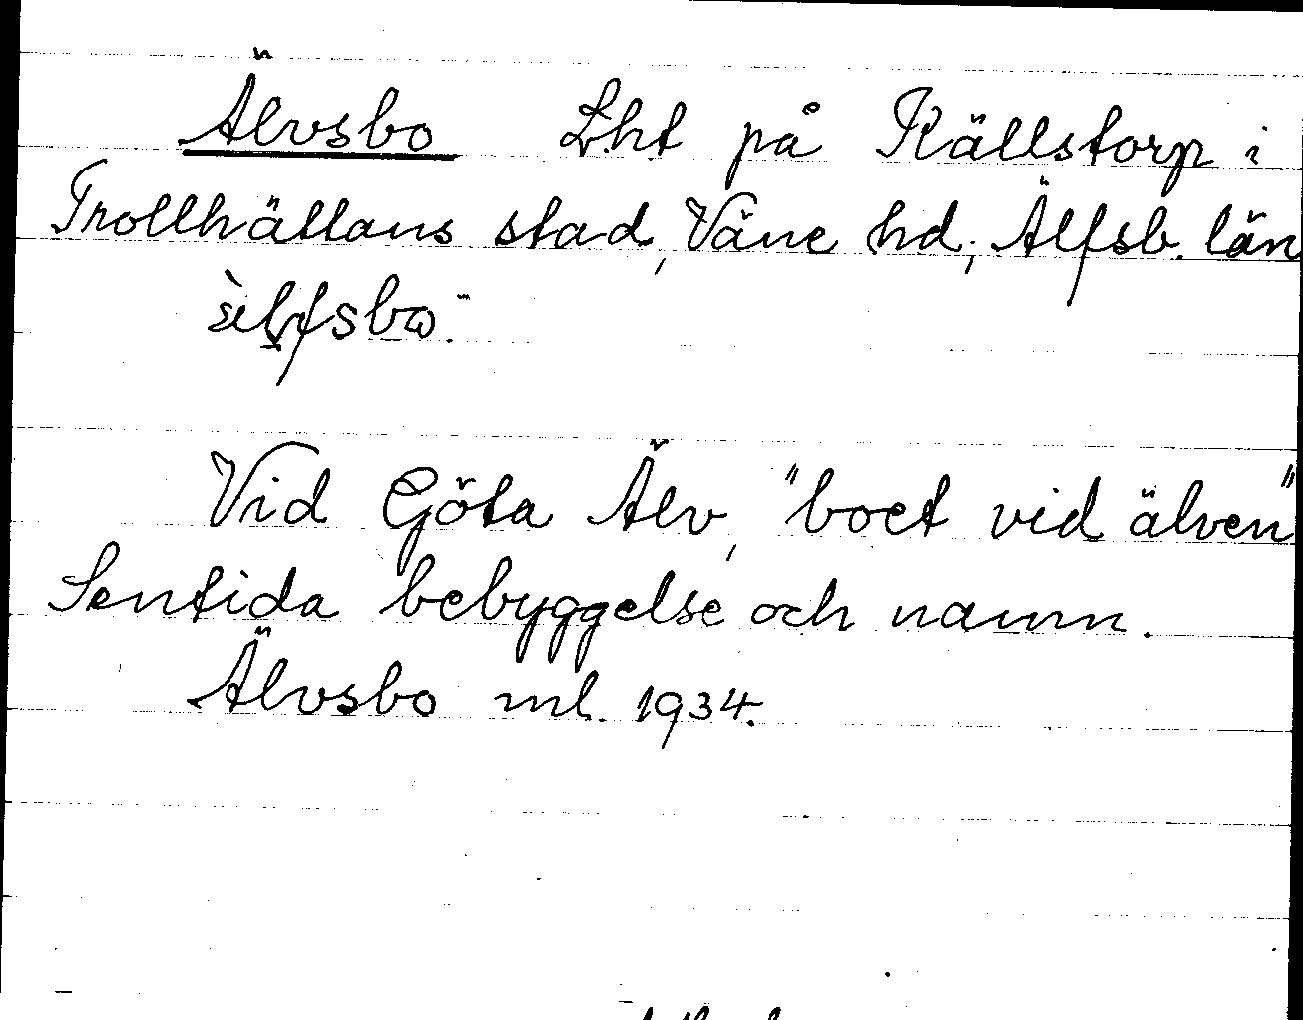 Älvsbo Lht på Källstorp i
Trollhättans stad, Väne hd, Älfsb. län
Vid Göta Älv, "boet vid älven"
Sentida bebyggelse och namn.
Älvsbo ml. 1934.